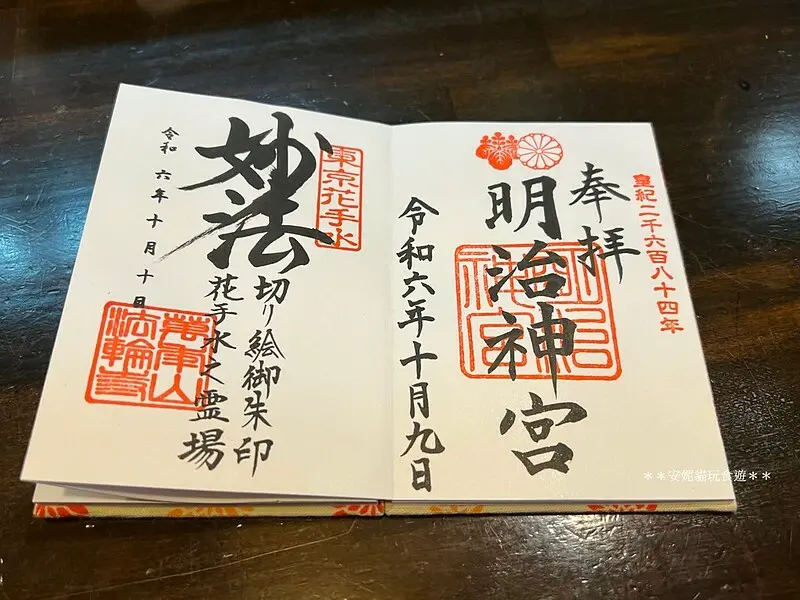 皇紀二千六百八十四年
奉拝
明治神宮
明治神宮
令和六年十月九日
東京花手水
妙法
切り絵御朱印
花手水之霊場
萬年山
法輪寺
令和六年十月十日
**安妮貓玩食遊**